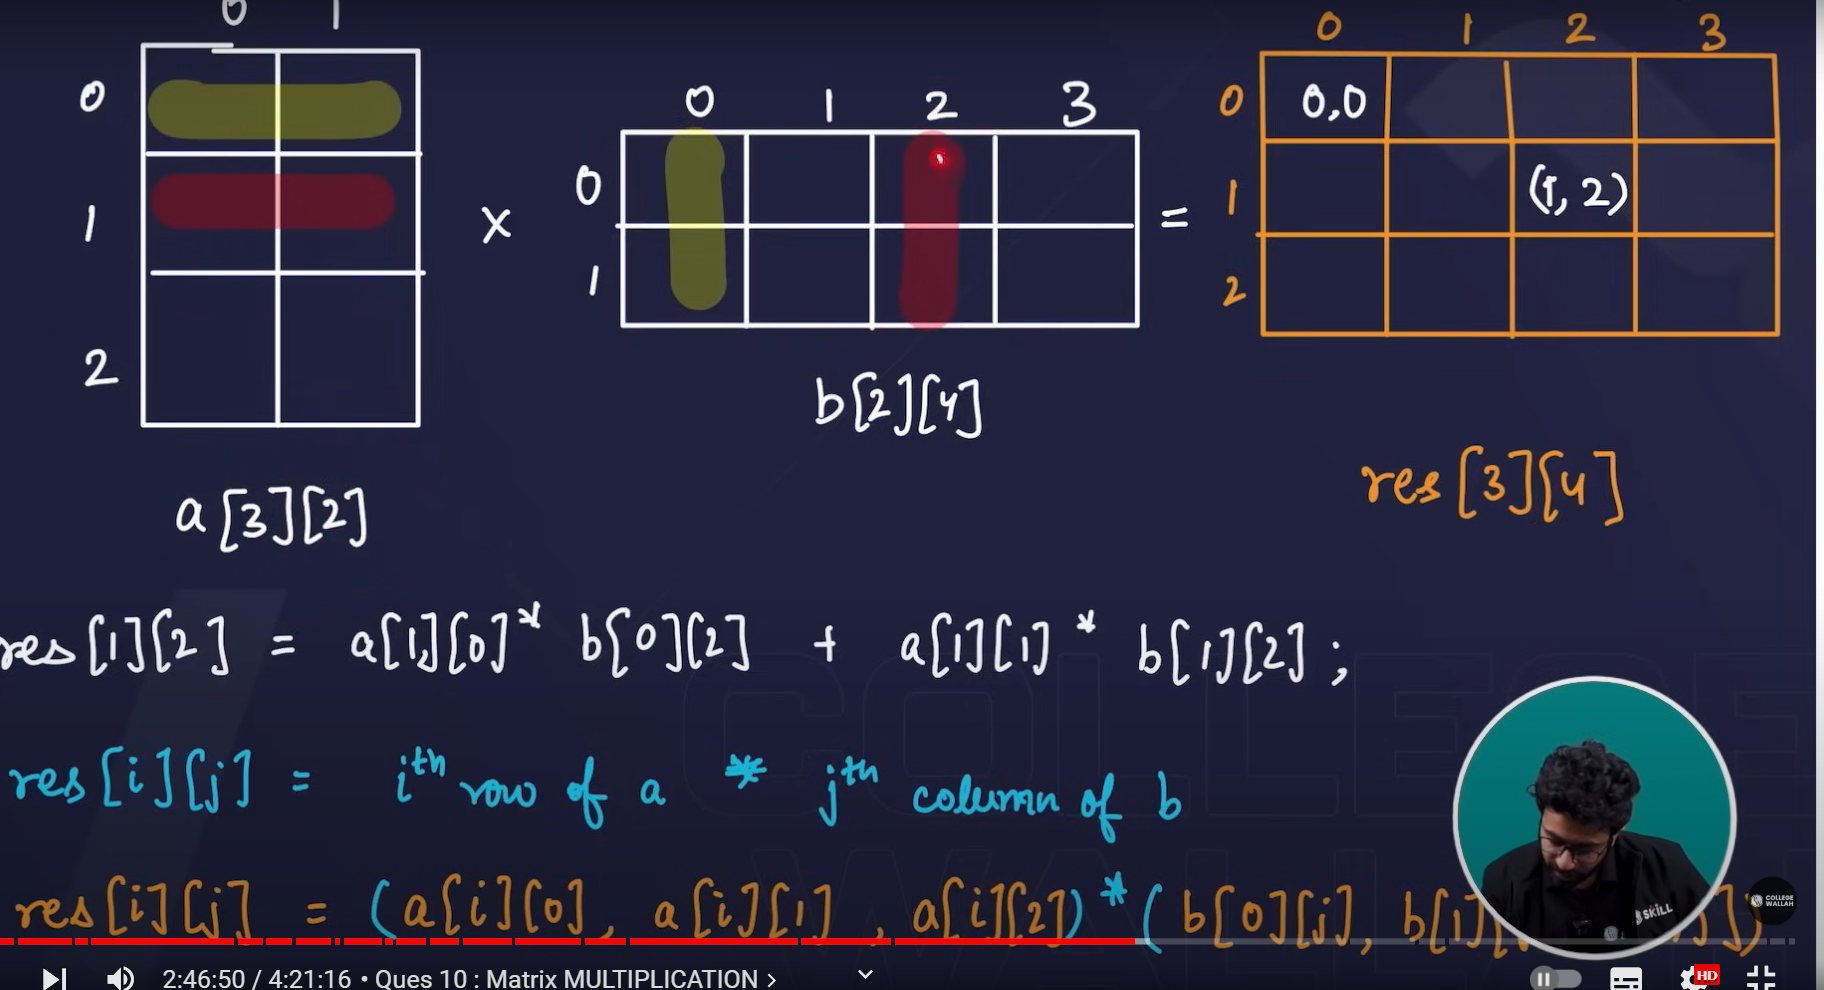 0 1
0
1
2
a[3][2]
x
0 1 2 3
0
1
b[2][4]
=
0 1 2 3
0 0,0
1 (1, 2)
2
res[3][4]
res[1][2] = a[1][0] * b[0][2] + a[1][1] * b[1][2];
res[i][j] = ith row of a * jth column of b
res[i][j] = (a[i][0], a[i][1], a[i][2]) * (b[0][j], b[1][ j])
COLLEGE
WALLAH
SKILL
COLLEGE
WALLAH
2:46:50 / 4:21:16 • Ques 10 : Matrix MULTIPLICATION >
HD